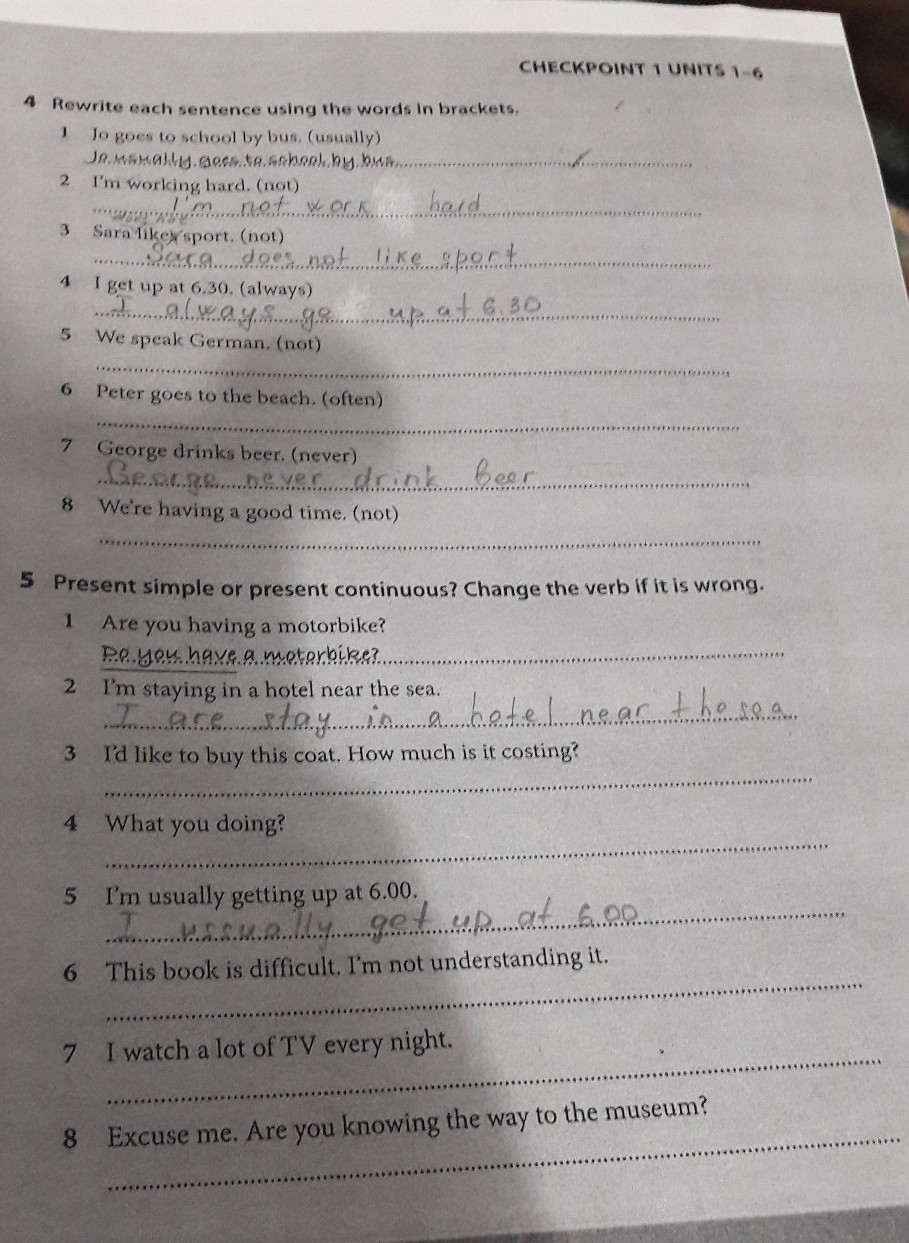 CHECKPOINT 1 UNITS 1–6
4 Rewrite each sentence using the words in brackets.
1 Jo goes to school by bus. (usually)
Jo usually goes to school by bus.
2 I'm working hard. (not)
I'm not work hard
3 Sara likes sport. (not)
Sara does not like sport
4 I get up at 6.30. (always)
I always ge up at 6.30
5 We speak German. (not)
6 Peter goes to the beach. (often)
7 George drinks beer. (never)
George never drink beer
8 We're having a good time. (not)
5 Present simple or present continuous? Change the verb if it is wrong.
1 Are you having a motorbike?
Do you have a motorbike?
2 I'm staying in a hotel near the sea.
I are stay in a hotel near the sea
3 I'd like to buy this coat. How much is it costing?
4 What you doing?
5 I'm usually getting up at 6.00.
I ussually get up at 6.00
6 This book is difficult. I'm not understanding it.
7 I watch a lot of TV every night.
8 Excuse me. Are you knowing the way to the museum?